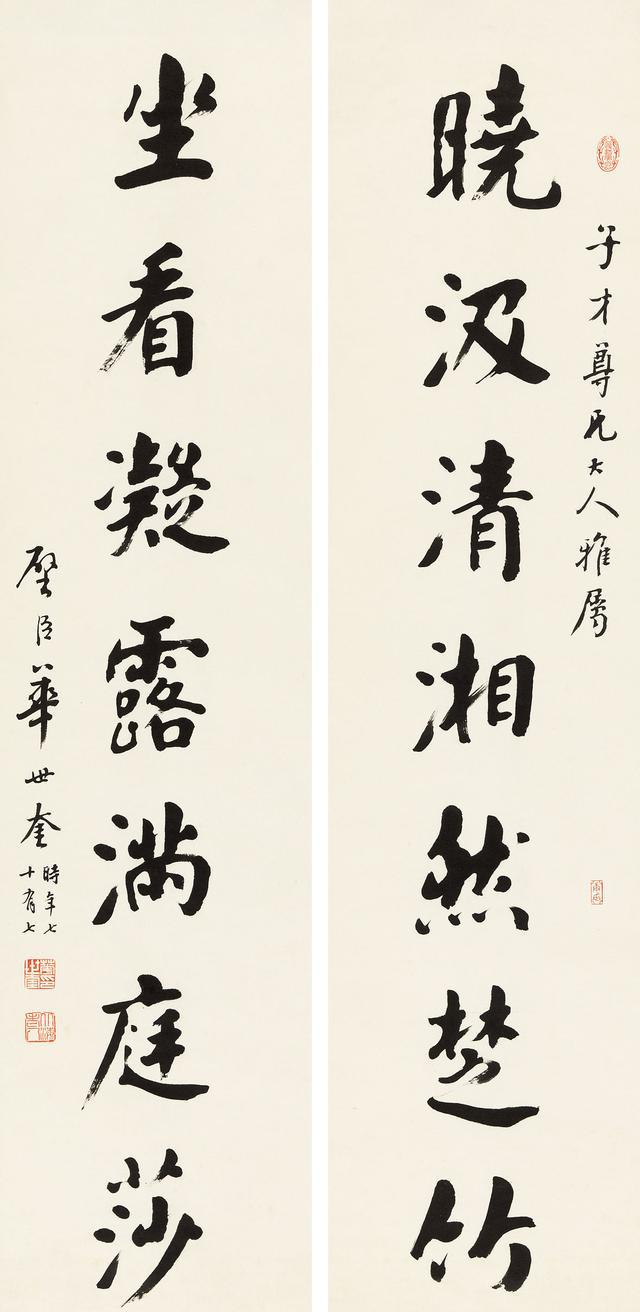 子才尊兄大人雅属
晓汲清湘然楚竹
坐看凝露满庭莎
璧臣华世奎
时年七
十有七